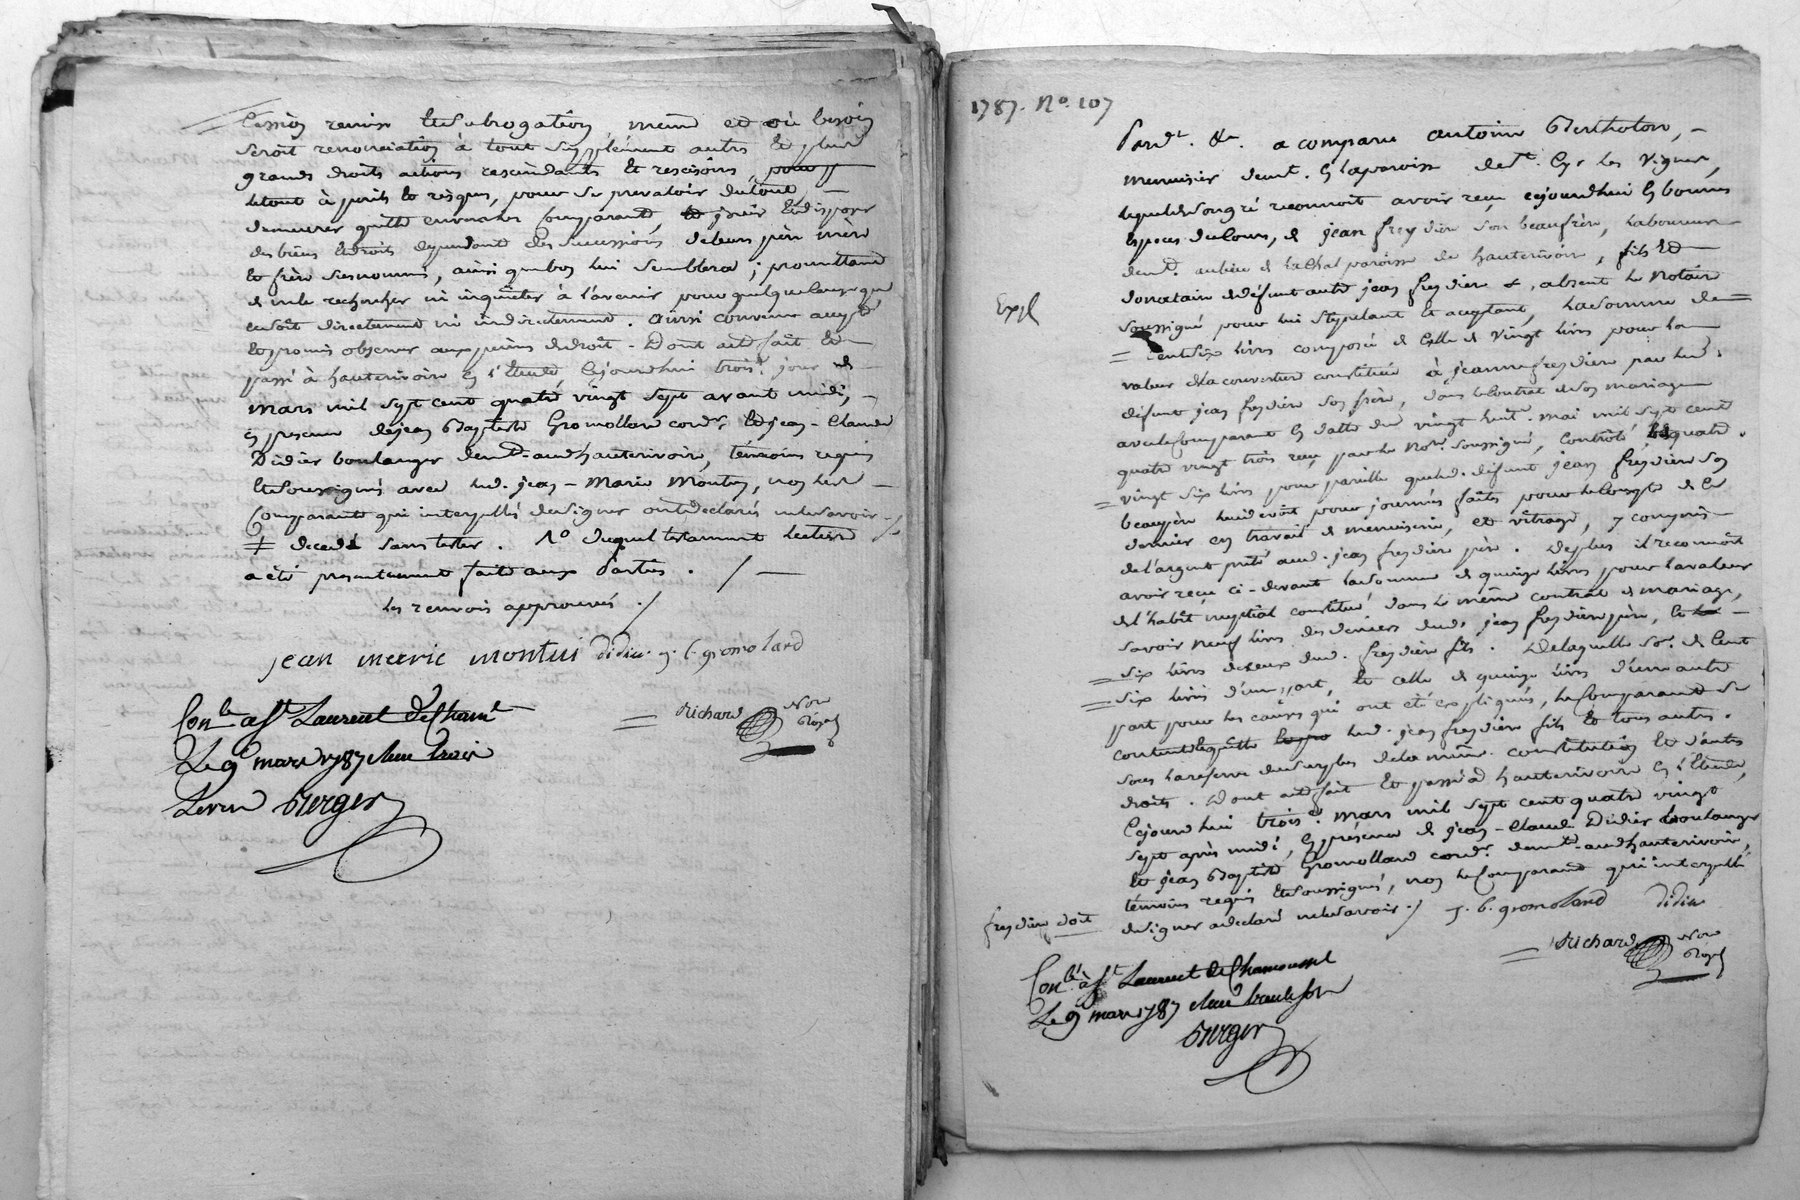 Cession remise et subrogation, meme et où besoin
seroit renonciation à tout supplément autres et plus
grands droits actions rescindants et rescisoirs, pour
letout à perils et risques, pour se prevaloir dutout
demeurer quitte envers les Comparants, jouir et disposer
des biens et droits dependants des successions de leurs père mère
et frère susnommés, ainsi que bon lui semblera; promettant
de ne le rechercher ni inquieter à l'avenir pour quelque cause que
ce soit directement ni indirectement. ainsi convenu accepté
et promis observer aux peines de droit. Dont acte fait et
passé à hauterivoire en l'Etude, cejourdhui trois.e jour de
mars mil sept cent quatre vingt sept avant midi,
en presence de jean Baptiste Gromollard cord.r et jean-Claude
Didier boulanger dem.t aud hauterivoire, témoins requis
et soussignés avec led. jean-Marie Montuy, non les
Comparants qui interpellés de signer ont declaré ne le savoir ./.
‡ decedé sans tester. N.o duquel testament lecture
a été presentement faite aux Parties. /
les renvois approuvés ./
jean meeric montui didier j. b. gromolard
Con.lé à S.t Laurent de Cham.t
Le 9 mars 1787 Reçu trois
Livres Berger
Richard No.re Royal
1787. N.o 107
Pard.t &a. a comparu antoine Bertholon,
menuisier dem.t en la paroisse de S.t Cyr les Vignes,
lequel de son gré reconnoit avoir reçu cejourdhui en bonnes
Especes du Cours, de jean freydiere son beaufrère, laboureur
dem.t au lieu de lachal paroisse de hauterivoire, fils et
donataire de défunt autre jean freydiere &, absent le Notaire
soussigné pour lui stipulant et acceptant, la somme de
Expl
= Cent six livres composée de Celle de vingt livres pour la
valeur de la couverture constituée à jeanne freydiere par led.
défunt jean freydiere son père, dans le Contrat de son mariage
avec le Comparant en datte du vingt huit mai mil sept cent
quatre vingt trois reçu par le No.re soussigné, Contrôlé, de quatre
= vingt six livres pour pareille que led. défunt jean freydiere son
beaupère lui devoit pour journées faites pour le Compte de ce
dernier en travail de menuiserie, et vitrage, y compris
de l'argent prêté aud. jean freydiere père. Deplus il reconnoit
avoir reçu ci-devant la somme de quinze livres pour la valeur
de l'habit nuptial constitué dans le même contrat de mariage,
savoir neuf livres des deniers dud. jean freydiere père, et
= six livres de ceux dud. freydiere fils. De laquelle so.e de Cent
= six livres d'une part, et celle de quinze livres d'une autre
part pour les causes qui ont été expliquées, le Comparant se
contente et quitte led. jean freydiere fils et tous autres.
sous la reserve du surplus de la même constitution et d'autres
droits. Dont acte fait et passé à hauterivoire en l'Etude,
Cejourdhui trois.e mars mil sept cent quatre vingt
sept après midi, en présence de jean-Claude Didier boulanger
et jean Baptiste Gromollard cord.r dem.t aud hauterivoire,
témoins requis et soussignés, non le Comparant qui interpellé
de signer a declaré ne le savoir ./ J. b. gromolard didier
freydiere doit
Richard No.re Royal
Con.lé à S.t Laurent de Chamousset
Le 9 mars 1787 Reçu trente sols
Berger